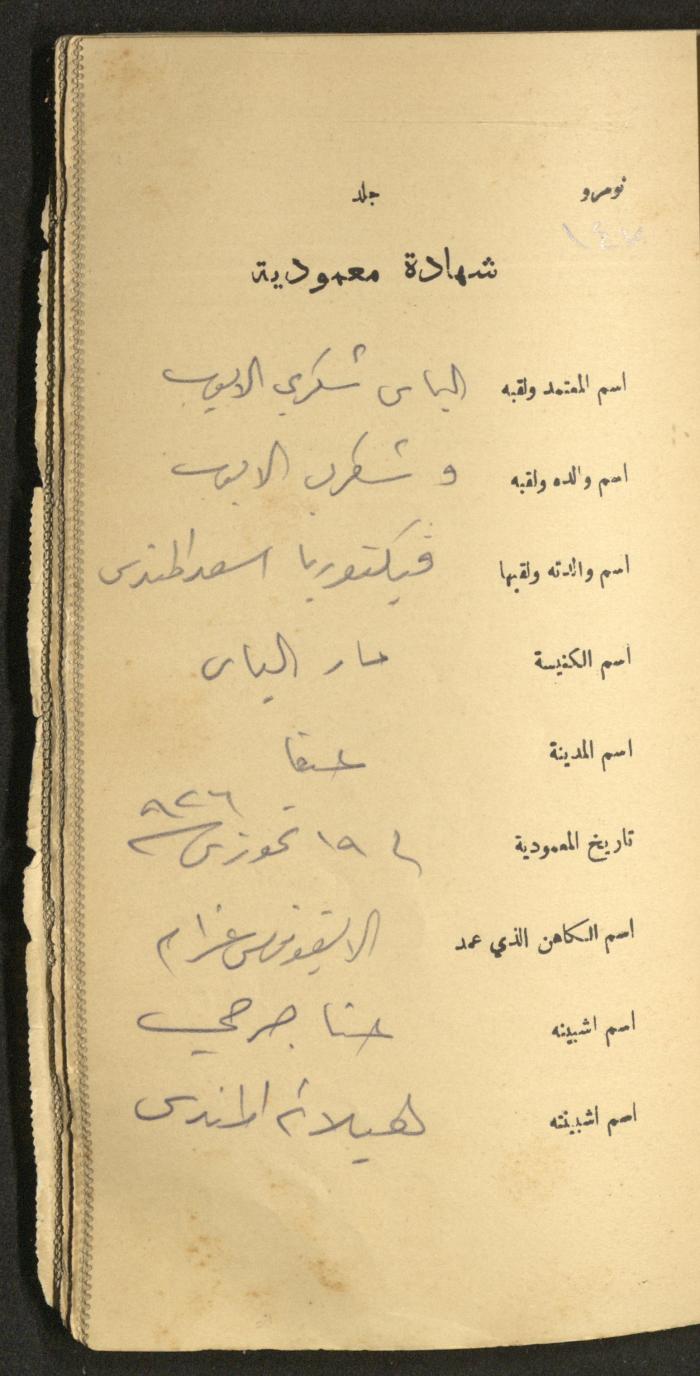 نومرو جلد
شهادة معمودية
اسم المعتمد ولقبه الياس شكري الايوب
اسم والده ولقبه شكري الايوب
اسم والدته ولقبها فيكتوريا اسعد
اسم الكنيسة مار الياس
اسم المدينة حيفا
تاريخ المعمودية ١٩ تموز ٩٢٦
اسم الكاهن الذي عمد
اسم اشبينه حنا
اسم اشبينته هيلانة